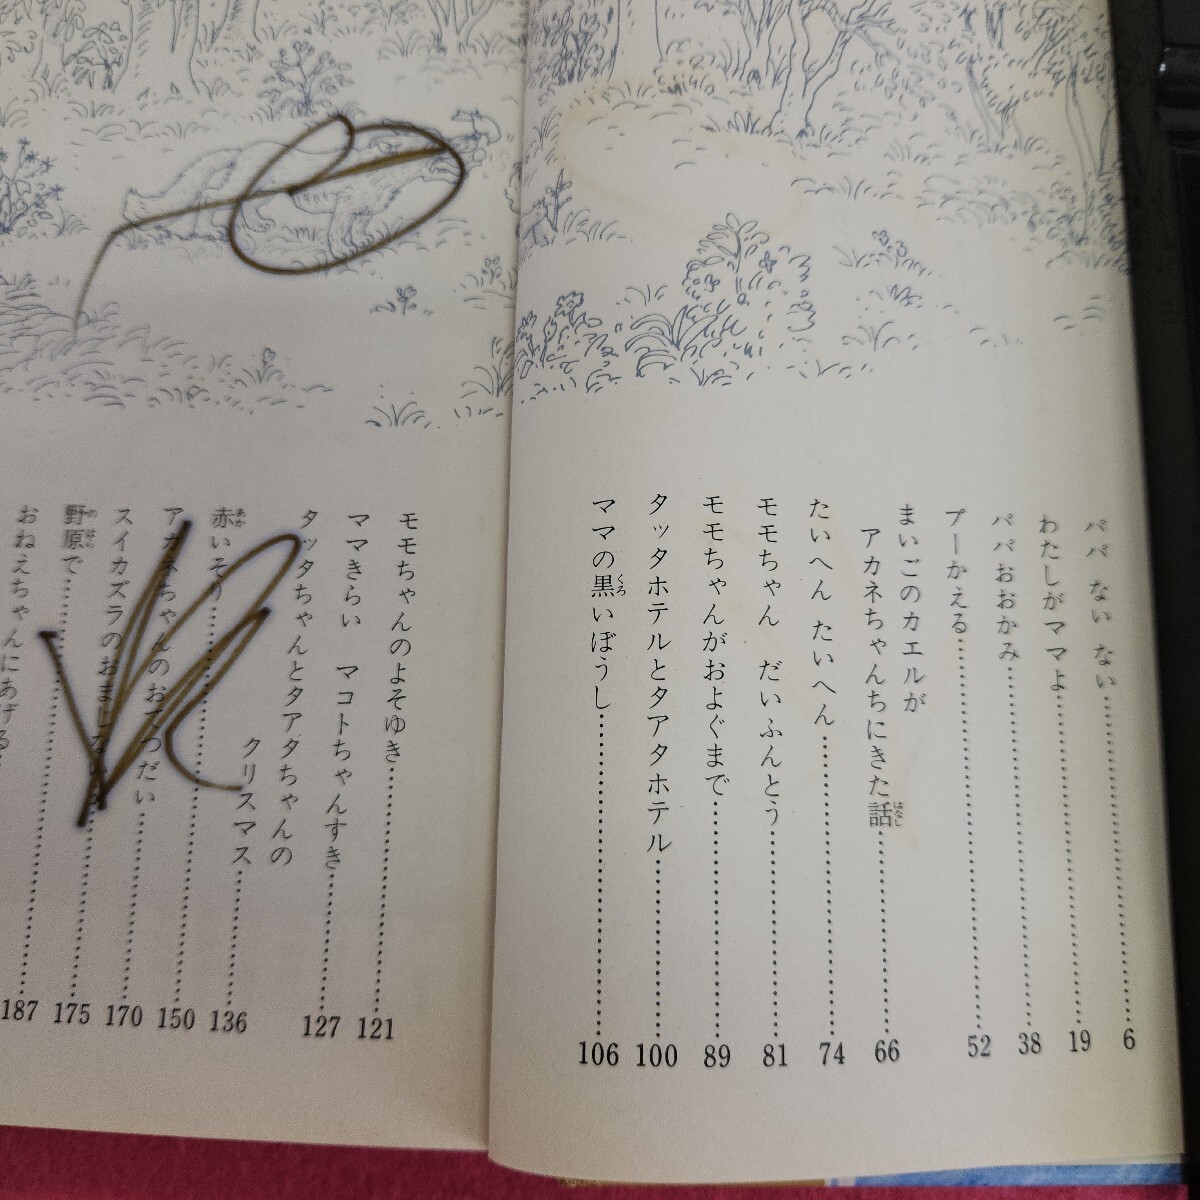 パパ ない ない 6
わたしがママよ 19
パパおおかみ 38
プーかえる 52
まいごのカエルが
アカネちゃんちにきた話 66
はなし
たいへん たいへん 74
モモちゃん だいふんとう 81
モモちゃんがおよぐまで 89
タッタホテルとタアタホテル 100
ママの黒いぼうし 106
くろ
モモちゃんのよそゆき 121
ママきらい マコトちゃんすき 127
タッタちゃんとタアタちゃんの
クリスマス 136
赤いそり 150
あか
アカネちゃんのおてつだい 170
スイカズラのおまじない 175
野原で 187
のはら
おねえちゃんにあげる